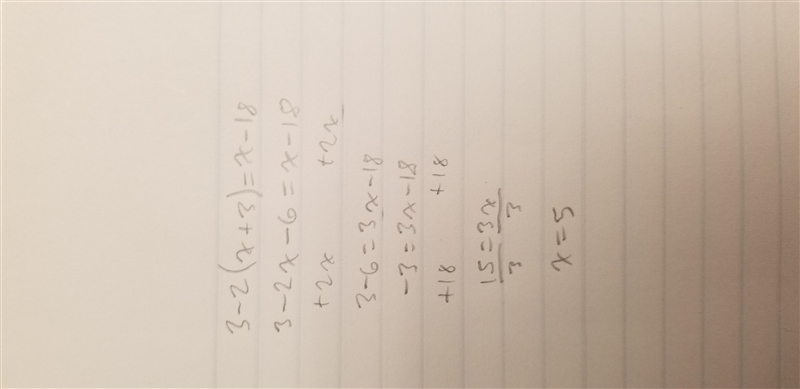 3-2(x+3)=x-18
3-2x-6=x-18
+2x +2x
3-6=3x-18
-3=3x-18
+18 +18
15=3x
3 3
x=5